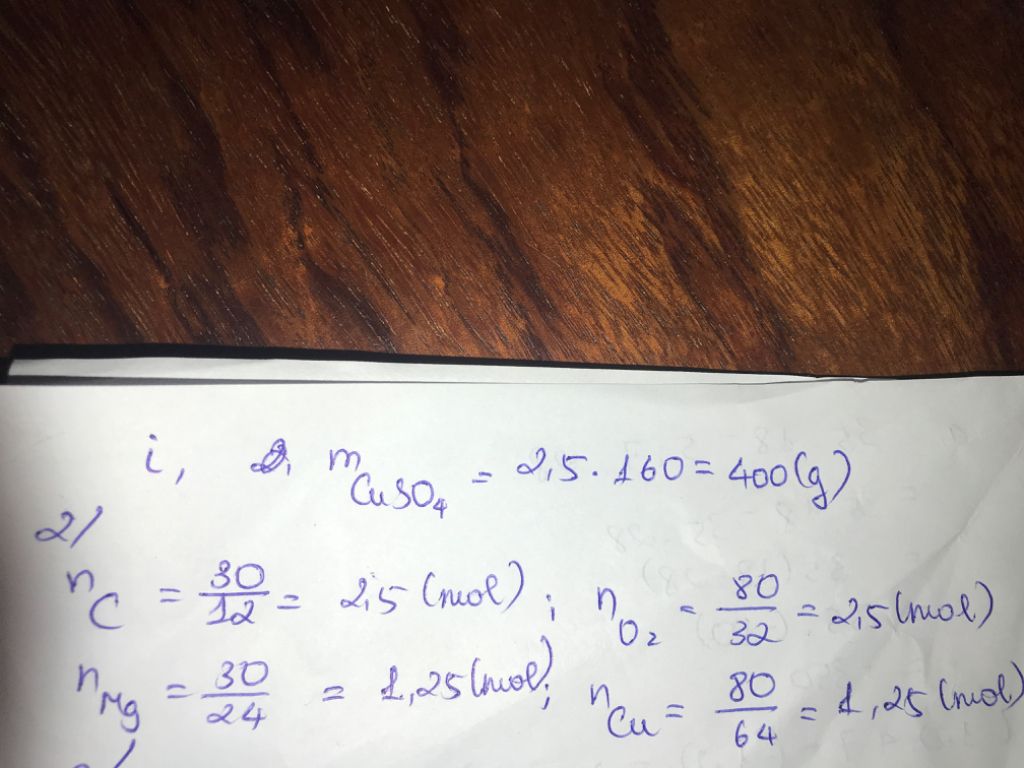 i, m CuSO4 = 2,5 . 160 = 400 (g)
2/
nC = 30/12 = 2,5 (mol) ; nO2 = 80/32 = 2,5 (mol)
nMg = 30/24 = 1,25 (mol) ; nCu = 80/64 = 1,25 (mol)